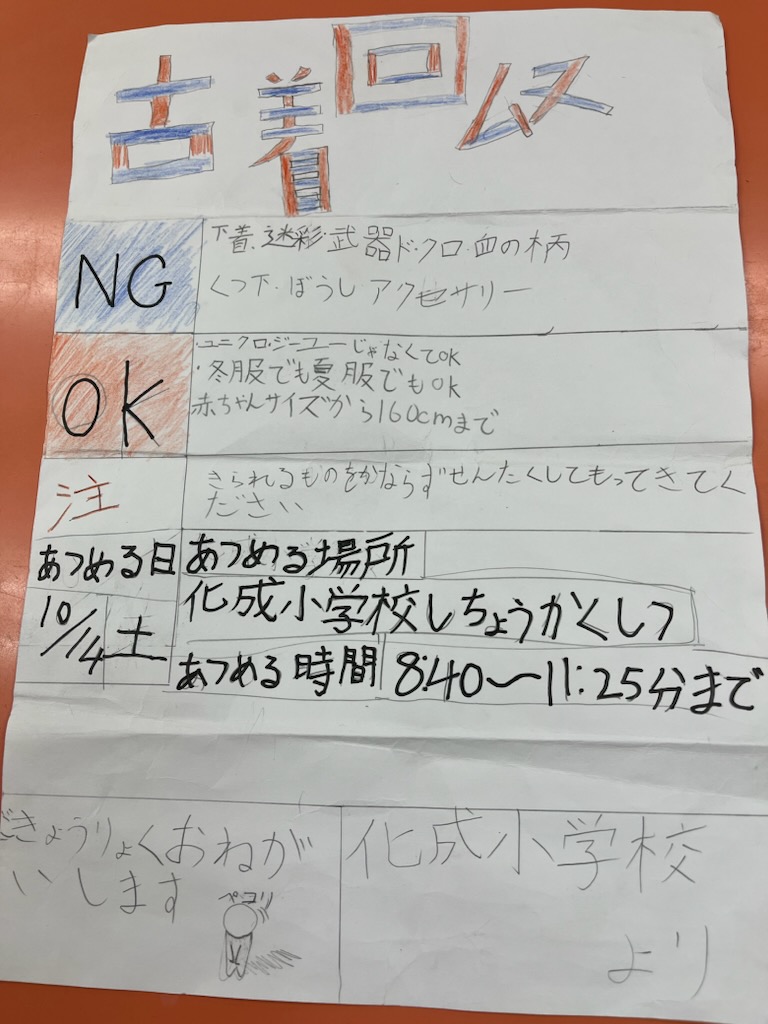 古着回収
NG
下着、迷彩・武器ド・クロ・血の柄
くつ下・ぼうし アクセサリー
OK
・ユニクロ・ジーユーじゃなくてOK
・冬服でも夏服でもOK
赤ちゃんサイズから160cmまで
注
きられるものをかならずせんたくしてもってきてく
ださい
あつめる日
10/4土
あつめる場所
化成小学校しちょうかくしつ
あつめる時間
8:40〜11:25分まで
ごきょうりょくおねが
いします
ペコリ
化成小学校
より